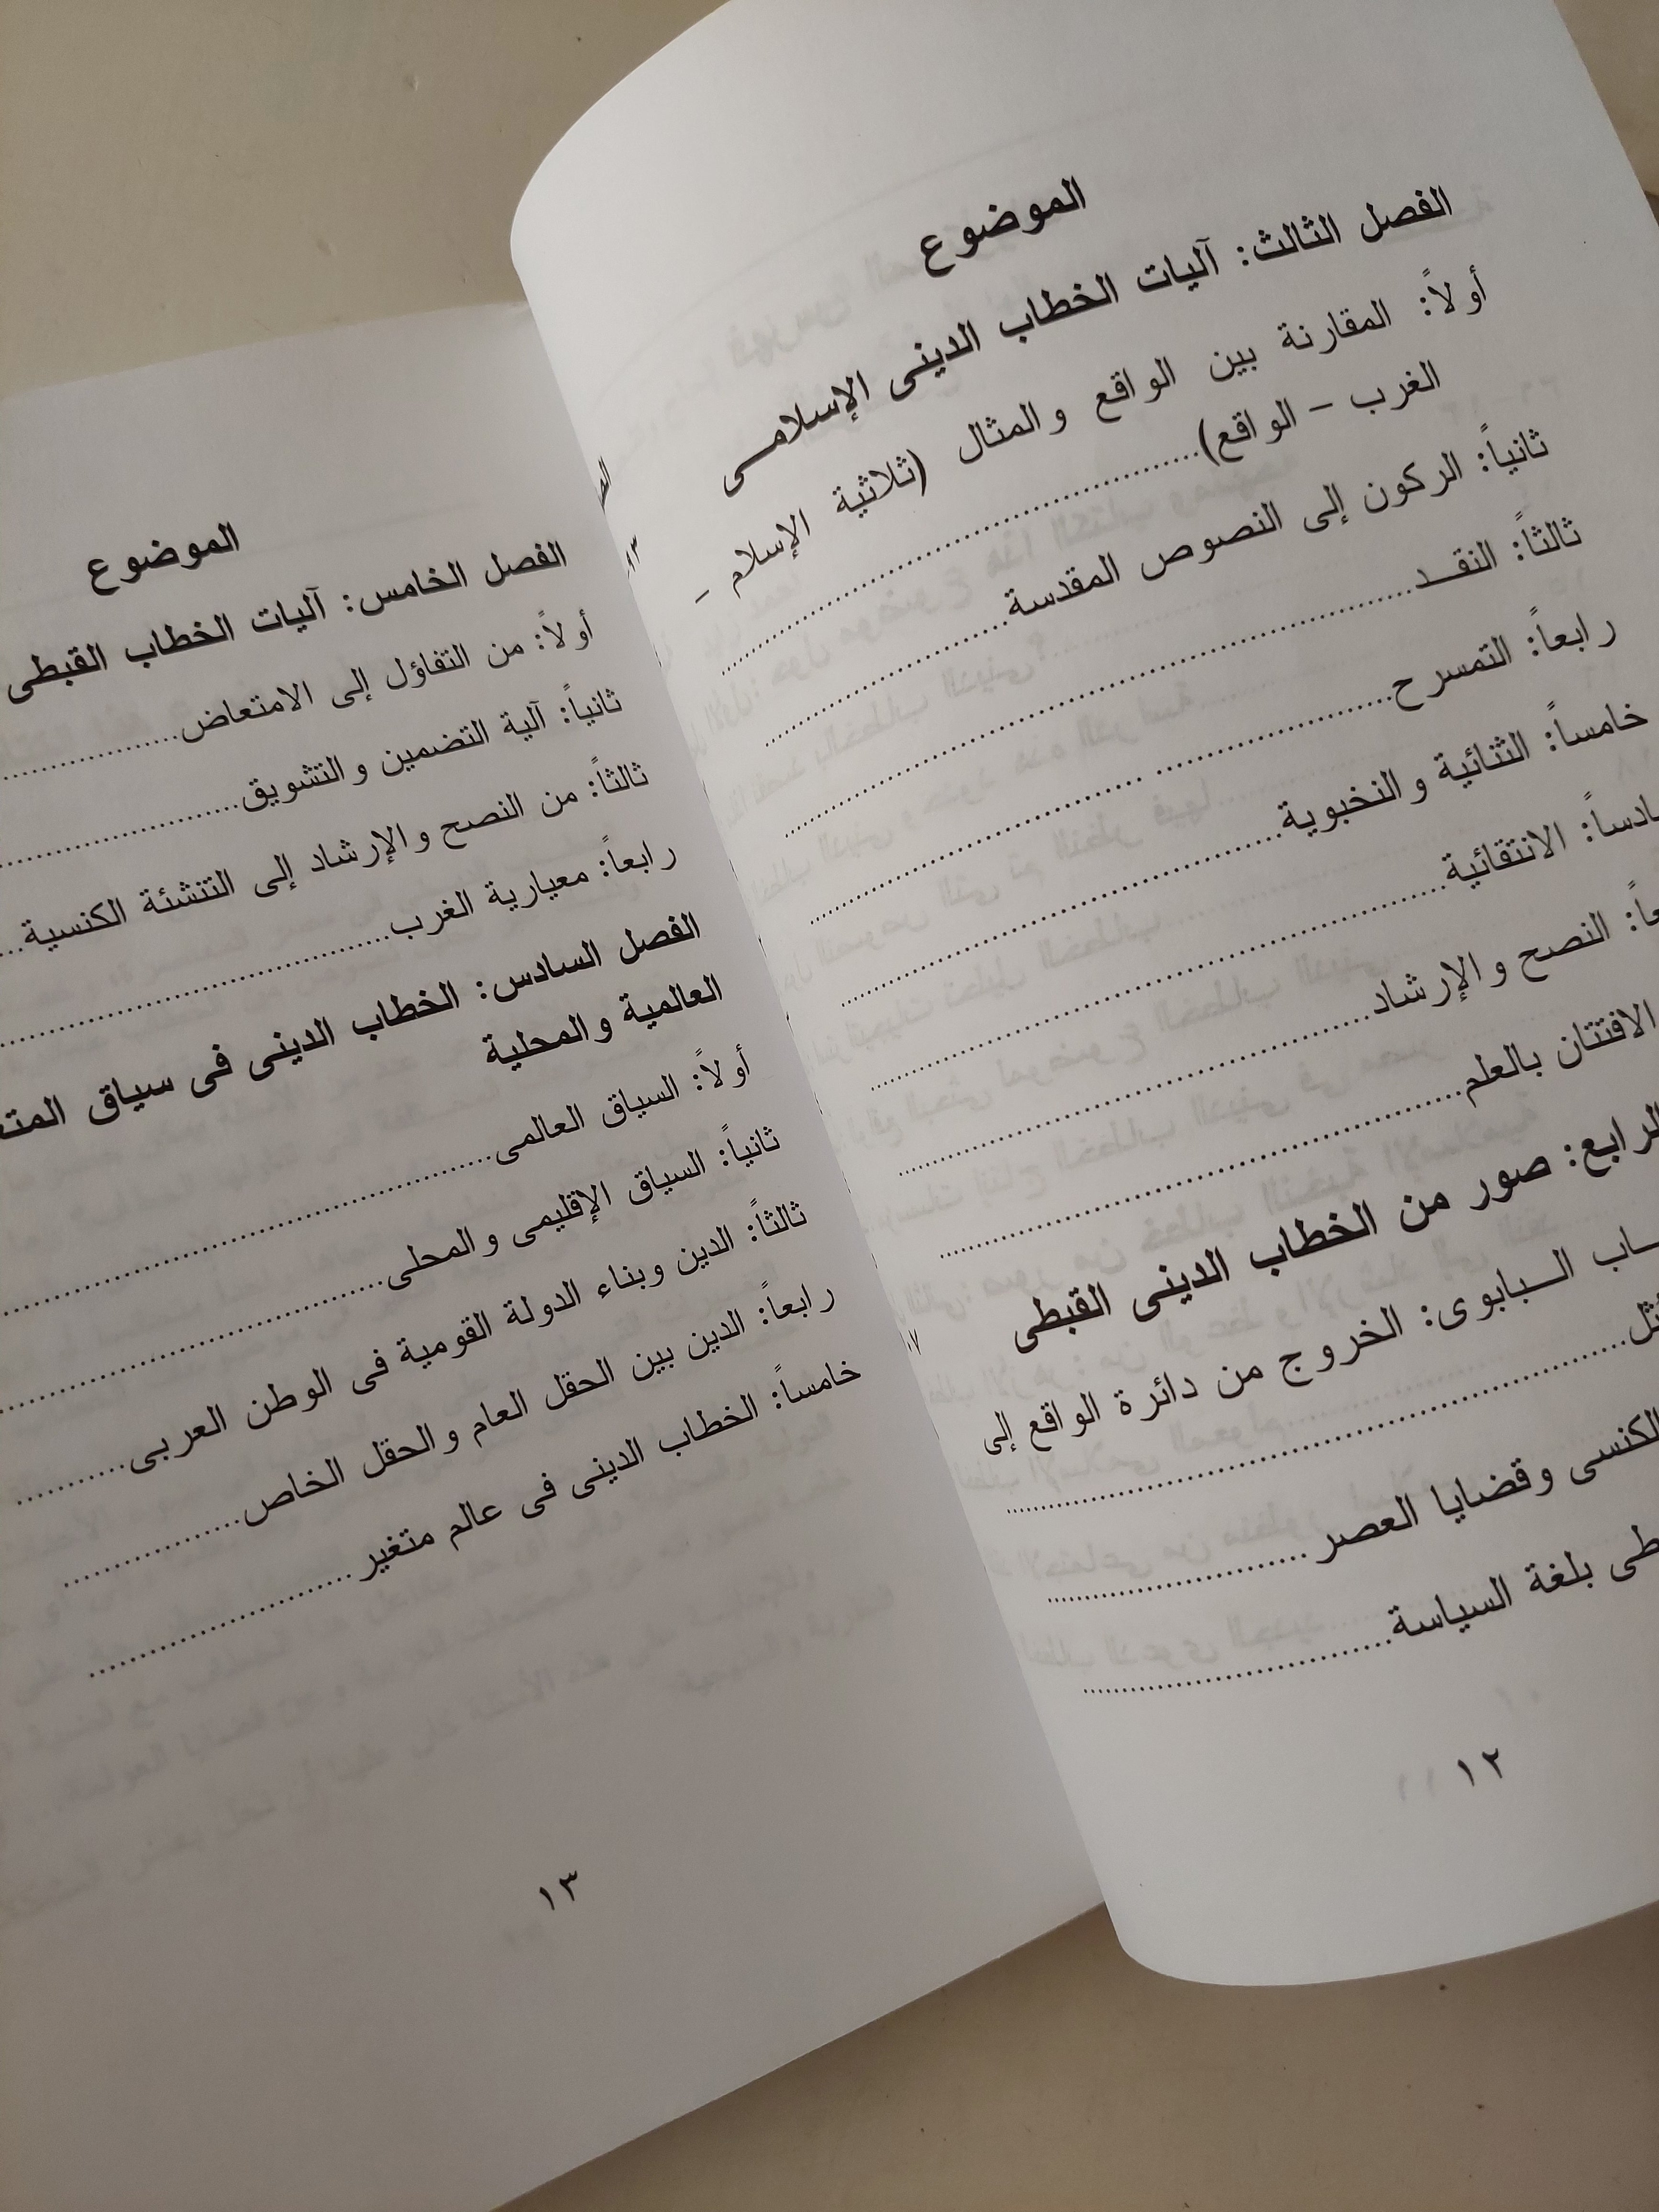 الموضوع
الفصل الثالث: آليات الخطاب الدينى الإسلامى
أولاً: المقارنة بين الواقع والمثال (ثلاثية الإسلام –
الغرب – الواقع)
ثانياً: الركون إلى النصوص المقدسة
ثالثاً: النقد
رابعاً: التمسرح
خامساً: الثنائية والنخبوية
الانتقائية
النصح والإرشاد
الافتتان بالعلم
الرابع: صور من الخطاب الدينى القبطى
البابوى: الخروج من دائرة الواقع إلى
الكنسى وقضايا العصر
بلغة السياسة
١٢
الموضوع
الفصل الخامس: آليات الخطاب القبطى
أولاً: من التفاؤل إلى الامتعاض
ثانياً: آلية التضمين والتشويق
ثالثاً: من النصح والإرشاد إلى التنشئة الكنسية
رابعاً: معيارية الغرب
الفصل السادس: الخطاب الدينى فى سياق
العالمية والمحلية
أولاً: السياق العالمى
ثانياً: السياق الإقليمى والمحلى
ثالثاً: الدين وبناء الدولة القومية فى الوطن العربى
رابعاً: الدين بين الحقل العام والحقل الخاص
خامساً: الخطاب الدينى فى عالم متغير
١٣